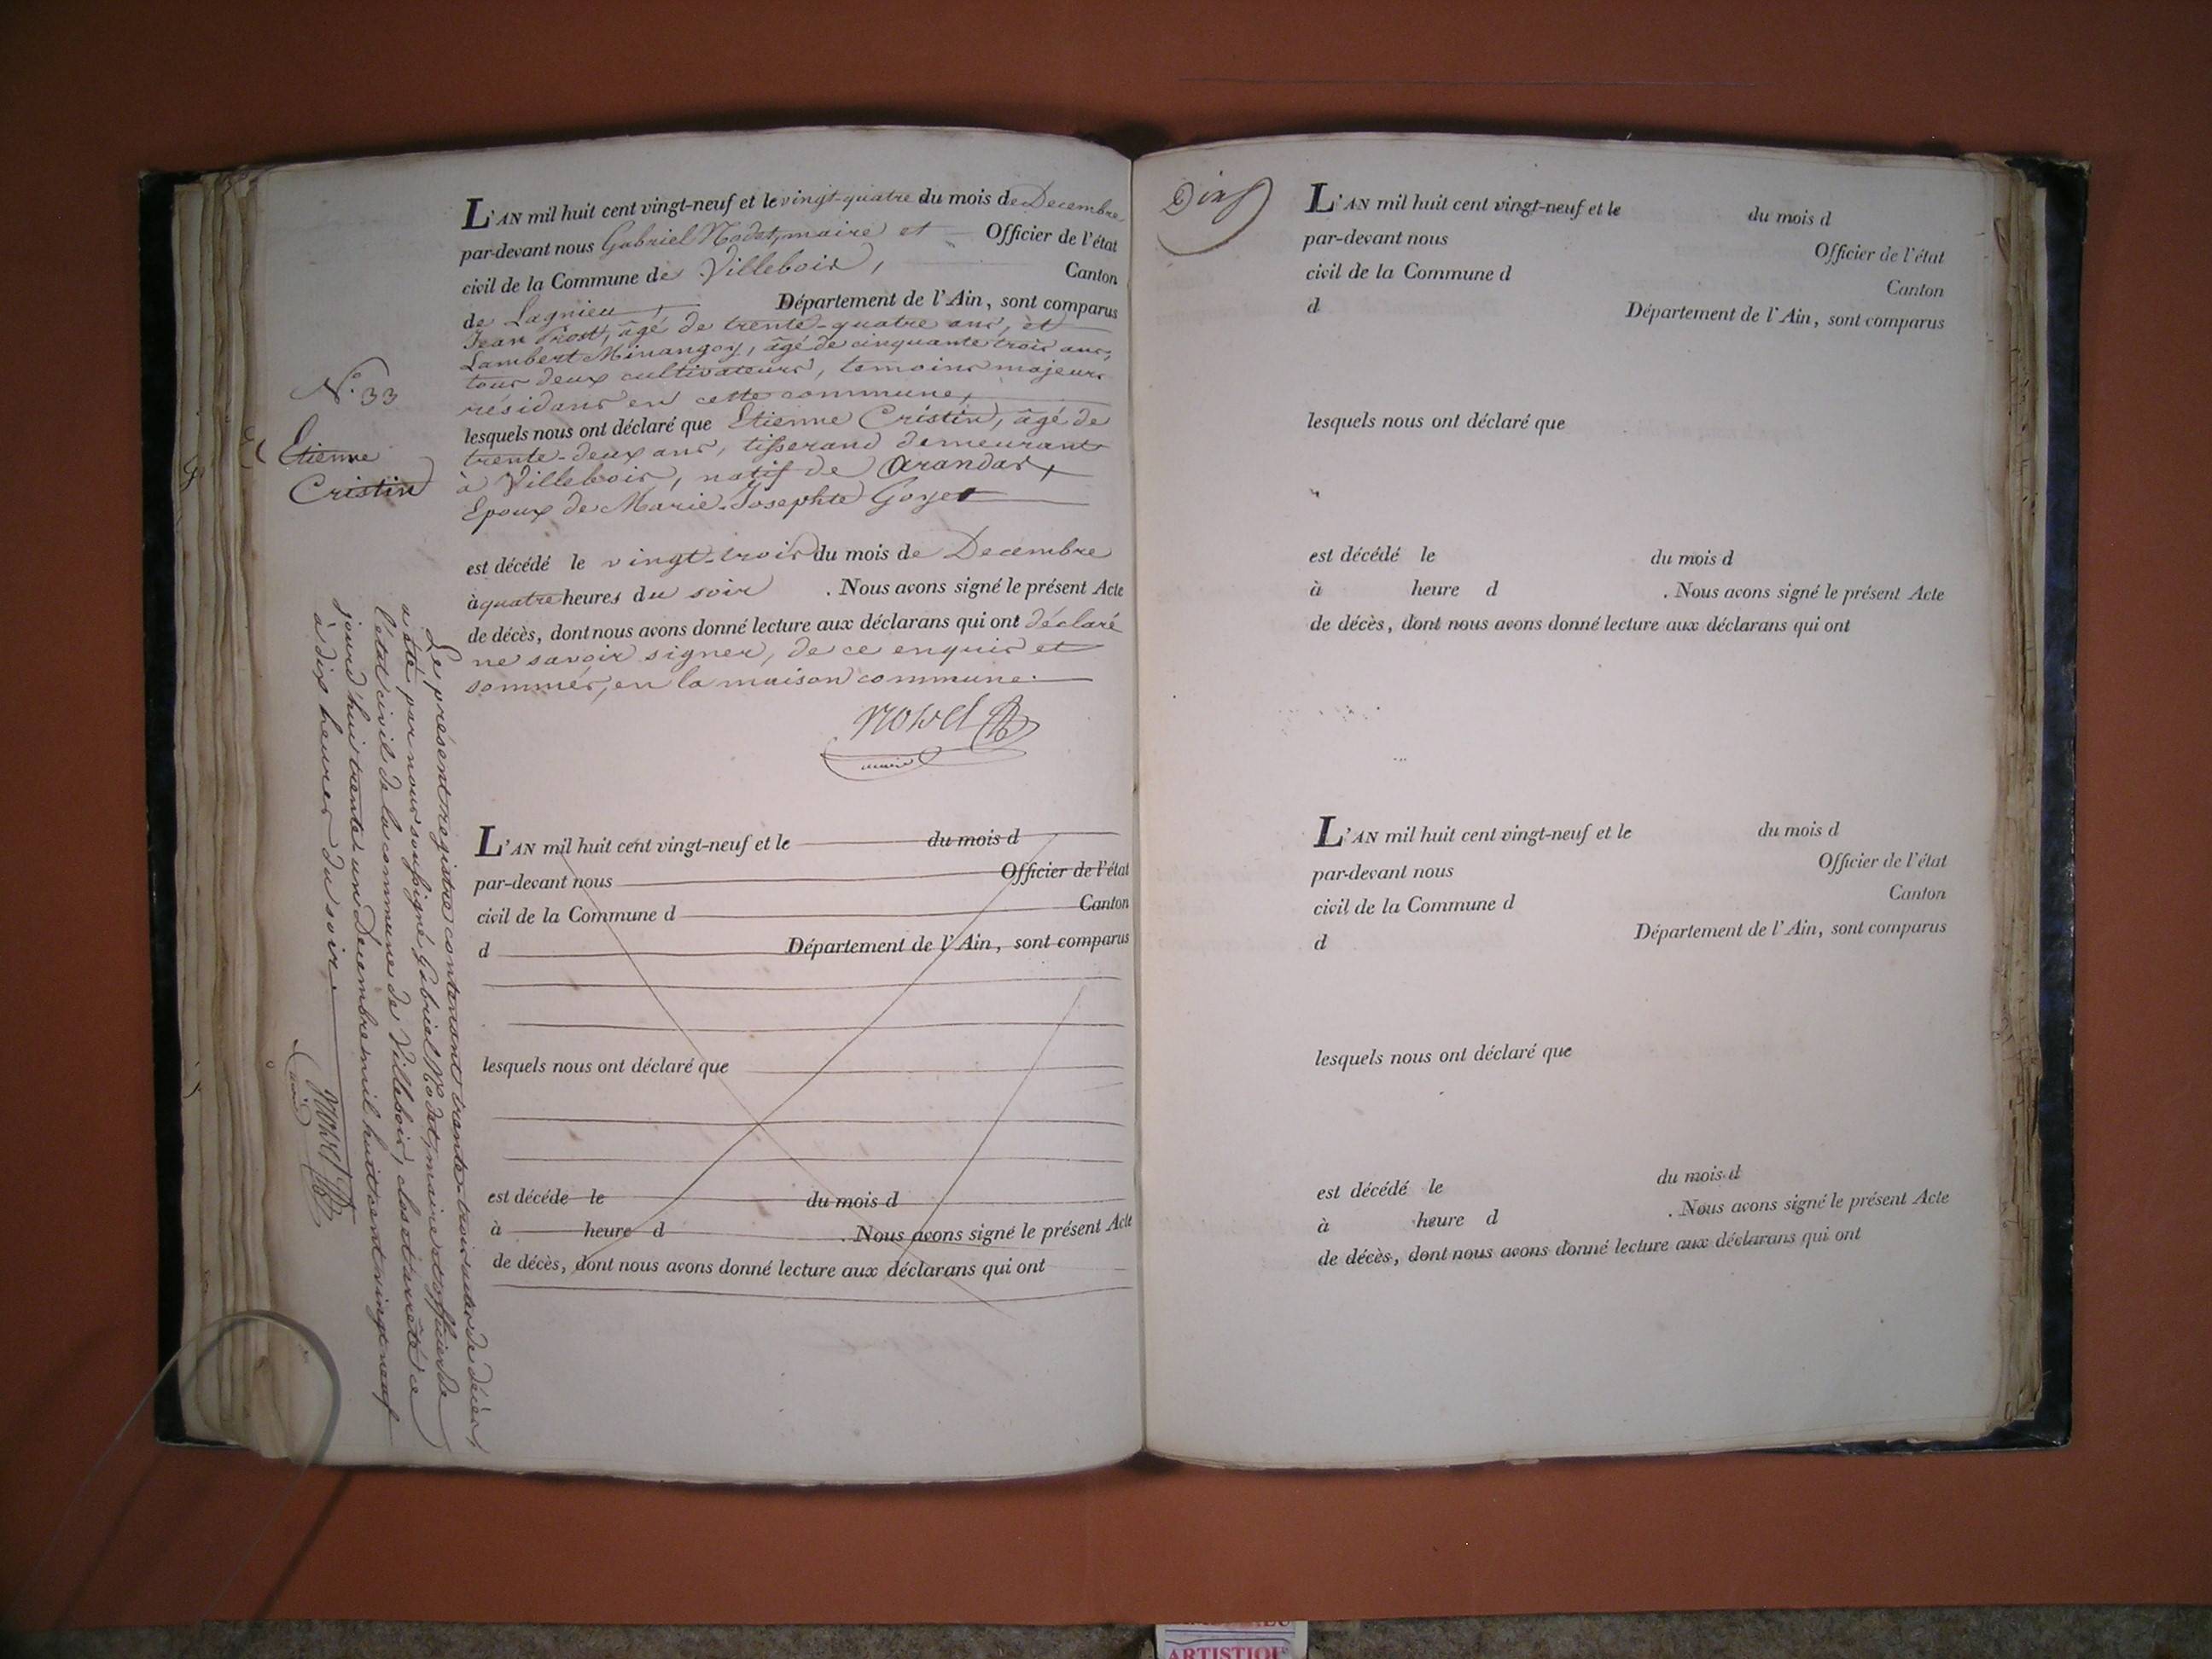 L'AN mil huit cent vingt-neuf et le vingt-quatre du mois de Decembre
par-devant nous Gabriel Nodet, maire et Officier de l'état
civil de la Commune de Villebois, Canton
de Lagnieu, Département de l'Ain, sont comparus
Jean Prost, âgé de trente-quatre ans, et
Lambert Minangoy, âgé de cinquante trois ans,
tous deux cultivateurs, temoins majeurs
résidans en cette commune,
lesquels nous ont déclaré que Etienne Cristin, âgé de
trente-deux ans, tisserand demeurant
à Villebois, natif de Arandas,
Epoux de Marie-Josephte Goyet
est décédé le vingt-trois du mois de Decembre
à quatre heures du soir . Nous avons signé le présent Acte
de décès, dont nous avons donné lecture aux déclarans qui ont déclaré
ne savoir signer, de ce enquis et
sommés, en la maison commune.
Nodet
maire
N.º 33
Etienne
Cristin
Le présent registre contenant trente-trois actes de décès,
a été par nous soussigné, Gabriel Nodet, maire et officier de
l'état civil de la commune de Villebois, clos et arrêté ce
jourd'hui trente un Decembre mil huit cent vingt neuf
à dix heures du soir.
Nodet
maire
L'AN mil huit cent vingt-neuf et le du mois d
par-devant nous Officier de l'état
civil de la Commune d Canton
d Département de l'Ain, sont comparus
lesquels nous ont déclaré que
est décédé le du mois d
à heure d . Nous avons signé le présent Acte
de décès, dont nous avons donné lecture aux déclarans qui ont
L'AN mil huit cent vingt-neuf et le du mois d
par-devant nous Officier de l'état
civil de la Commune d Canton
d Département de l'Ain, sont comparus
lesquels nous ont déclaré que
est décédé le du mois d
à heure d . Nous avons signé le présent Acte
de décès, dont nous avons donné lecture aux déclarans qui ont
L'AN mil huit cent vingt-neuf et le du mois d
par-devant nous Officier de l'état
civil de la Commune d Canton
d Département de l'Ain, sont comparus
lesquels nous ont déclaré que
est décédé le du mois d
à heure d . Nous avons signé le présent Acte
de décès, dont nous avons donné lecture aux déclarans qui ont
ARTISTIQU